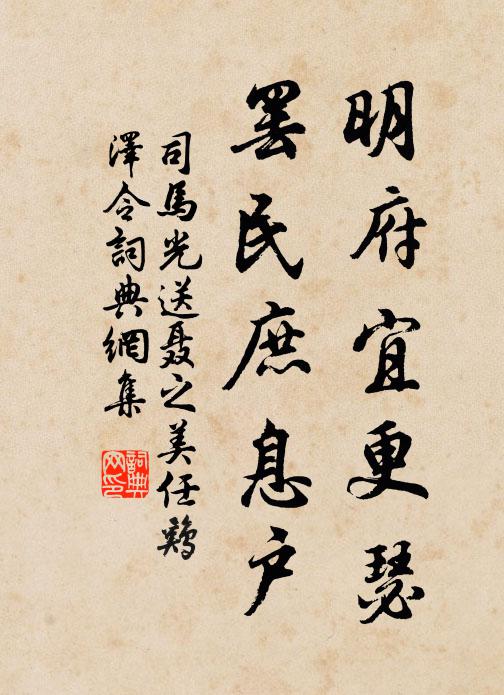 明府宜更瑟
罢民庶息户
司馬光送聂之美任鷄
澤令詞典網集
詞典
网印